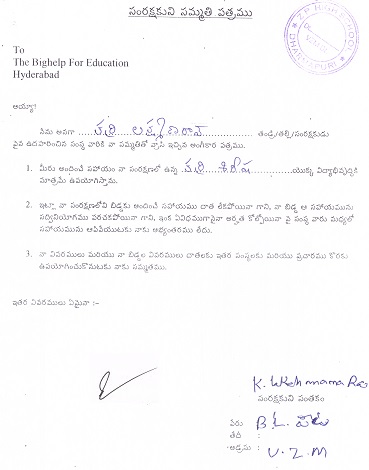 సంరక్షకుని సమ్మతి పత్రము
Z.P. HIGH SCHOOL
To
The Bighelp For Education
Hyderabad
అయ్యా!
నేను అనగా కర్రి లక్ష్మణరావు తండ్రి/తల్లి/సంరక్షకుడు
పైన ఉదహరించిన సంస్థ వారికి నా సమ్మతితో వ్రాసి ఇచ్చిన అంగీకార పత్రము.
1. మీరు అందించే సహాయం నా సంరక్షణలో ఉన్న కర్రి శిరీష యొక్క విద్యాభివృద్ధికి
మాత్రమే ఉపయోగిస్తాను.
2. ఇట్లా నా సంరక్షణలోని బిడ్డకు అందించే సహాయము దాత లేకపోయినా గాని, నా బిడ్డ ఆ సహాయమును
సద్వినియోగము పరచకపోయినా గాని, ఇంక ఏవిధముగానైనా అర్హత కోల్పోయినా పై సంస్థ వారు మధ్యలో
సహాయమును ఆపివేయుటకు నాకు అభ్యంతరము లేదు.
3. నా వివరములు మరియు నా బిడ్డల వివరములు దాతలకు ఇతర సంస్థలకు మరియు ప్రచారము కొరకు
ఉపయోగించుకొనుటకు నాకు సమ్మతము.
ఇతర వివరములు ఏమైనా :-
సంరక్షకుని సంతకం
పేరు :
తేదీ :
అడ్రసు : V.Z.M